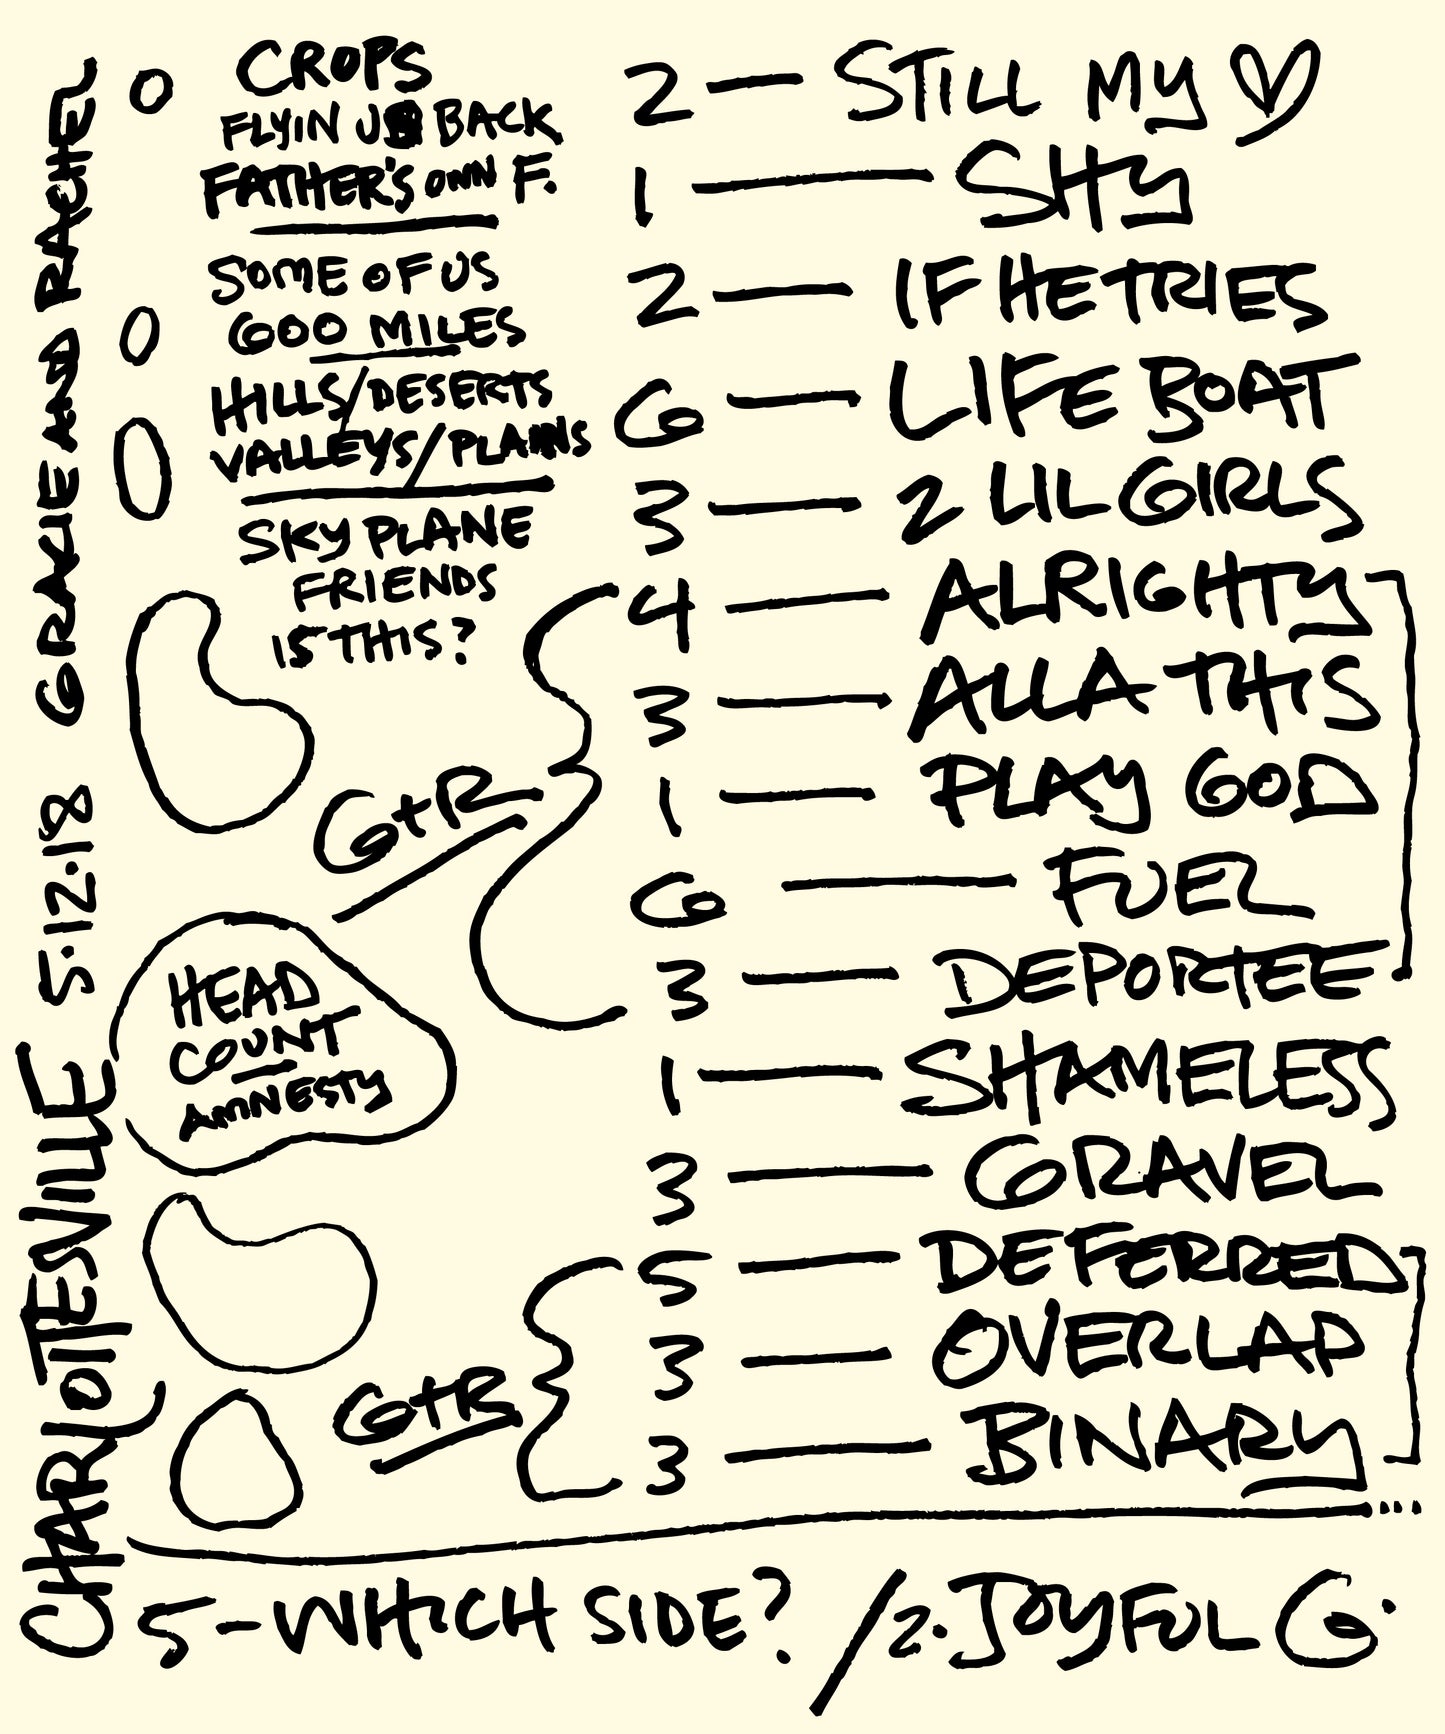 GRACIE AND RACHEL
5.12.18
CHARLOTTESVILLE
CROPS
FLYIN J BACK
FATHER'S OWN F.
SOME OF US
600 MILES
HILLS/DESERTS
VALLEYS/PLAINS
SKY PLANE
FRIENDS
IS THIS?
G+R
HEAD
COUNT
AMNESTY
G+R
2 — STILL MY ♡
1 — SHY
2 — IF HE TRIES
6 — LIFE BOAT
3 — 2 LIL GIRLS
4 — ALRIGHTY
3 — ALLA THIS
1 — PLAY GOD
6 — FUEL
3 — DEPORTEE
1 — SHAMELESS
3 — GRAVEL
5 — DEFERRED
3 — OVERLAP
3 — BINARY
...
5-WHICH SIDE? /2. JOYFUL G.